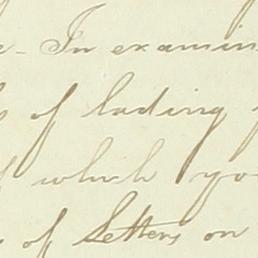 In examin
of lading
which yo
of letters on